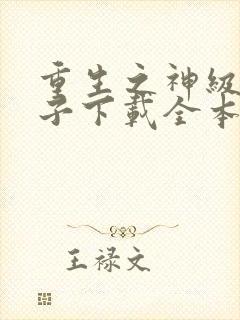 重生之神级
子下载全本
王禄文